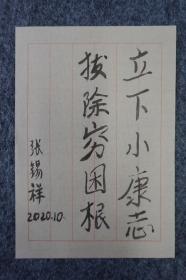 立下小康志
拔除穷困根
张锡祥
2020.10.